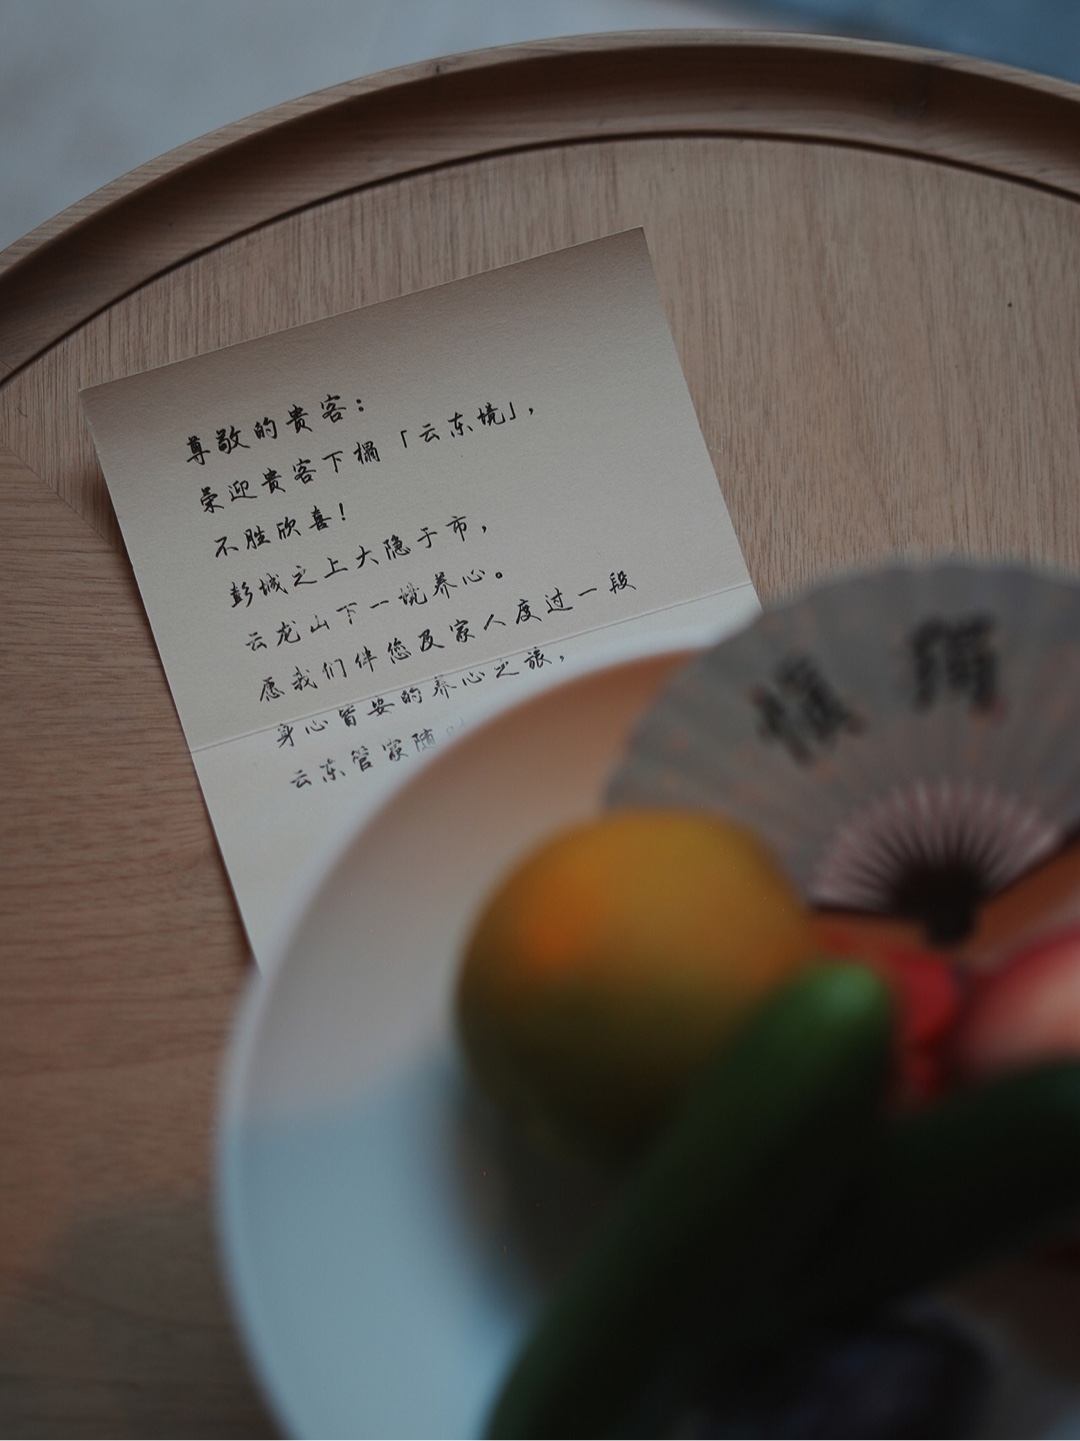 尊敬的贵客：
荣迎贵客下榻「云东境」，
不胜欣喜！
彭城之上大隐于市，
云龙山下一境养心。
愿我们伴您及家人度过一段
身心皆安的养心之旅，
云东管家随